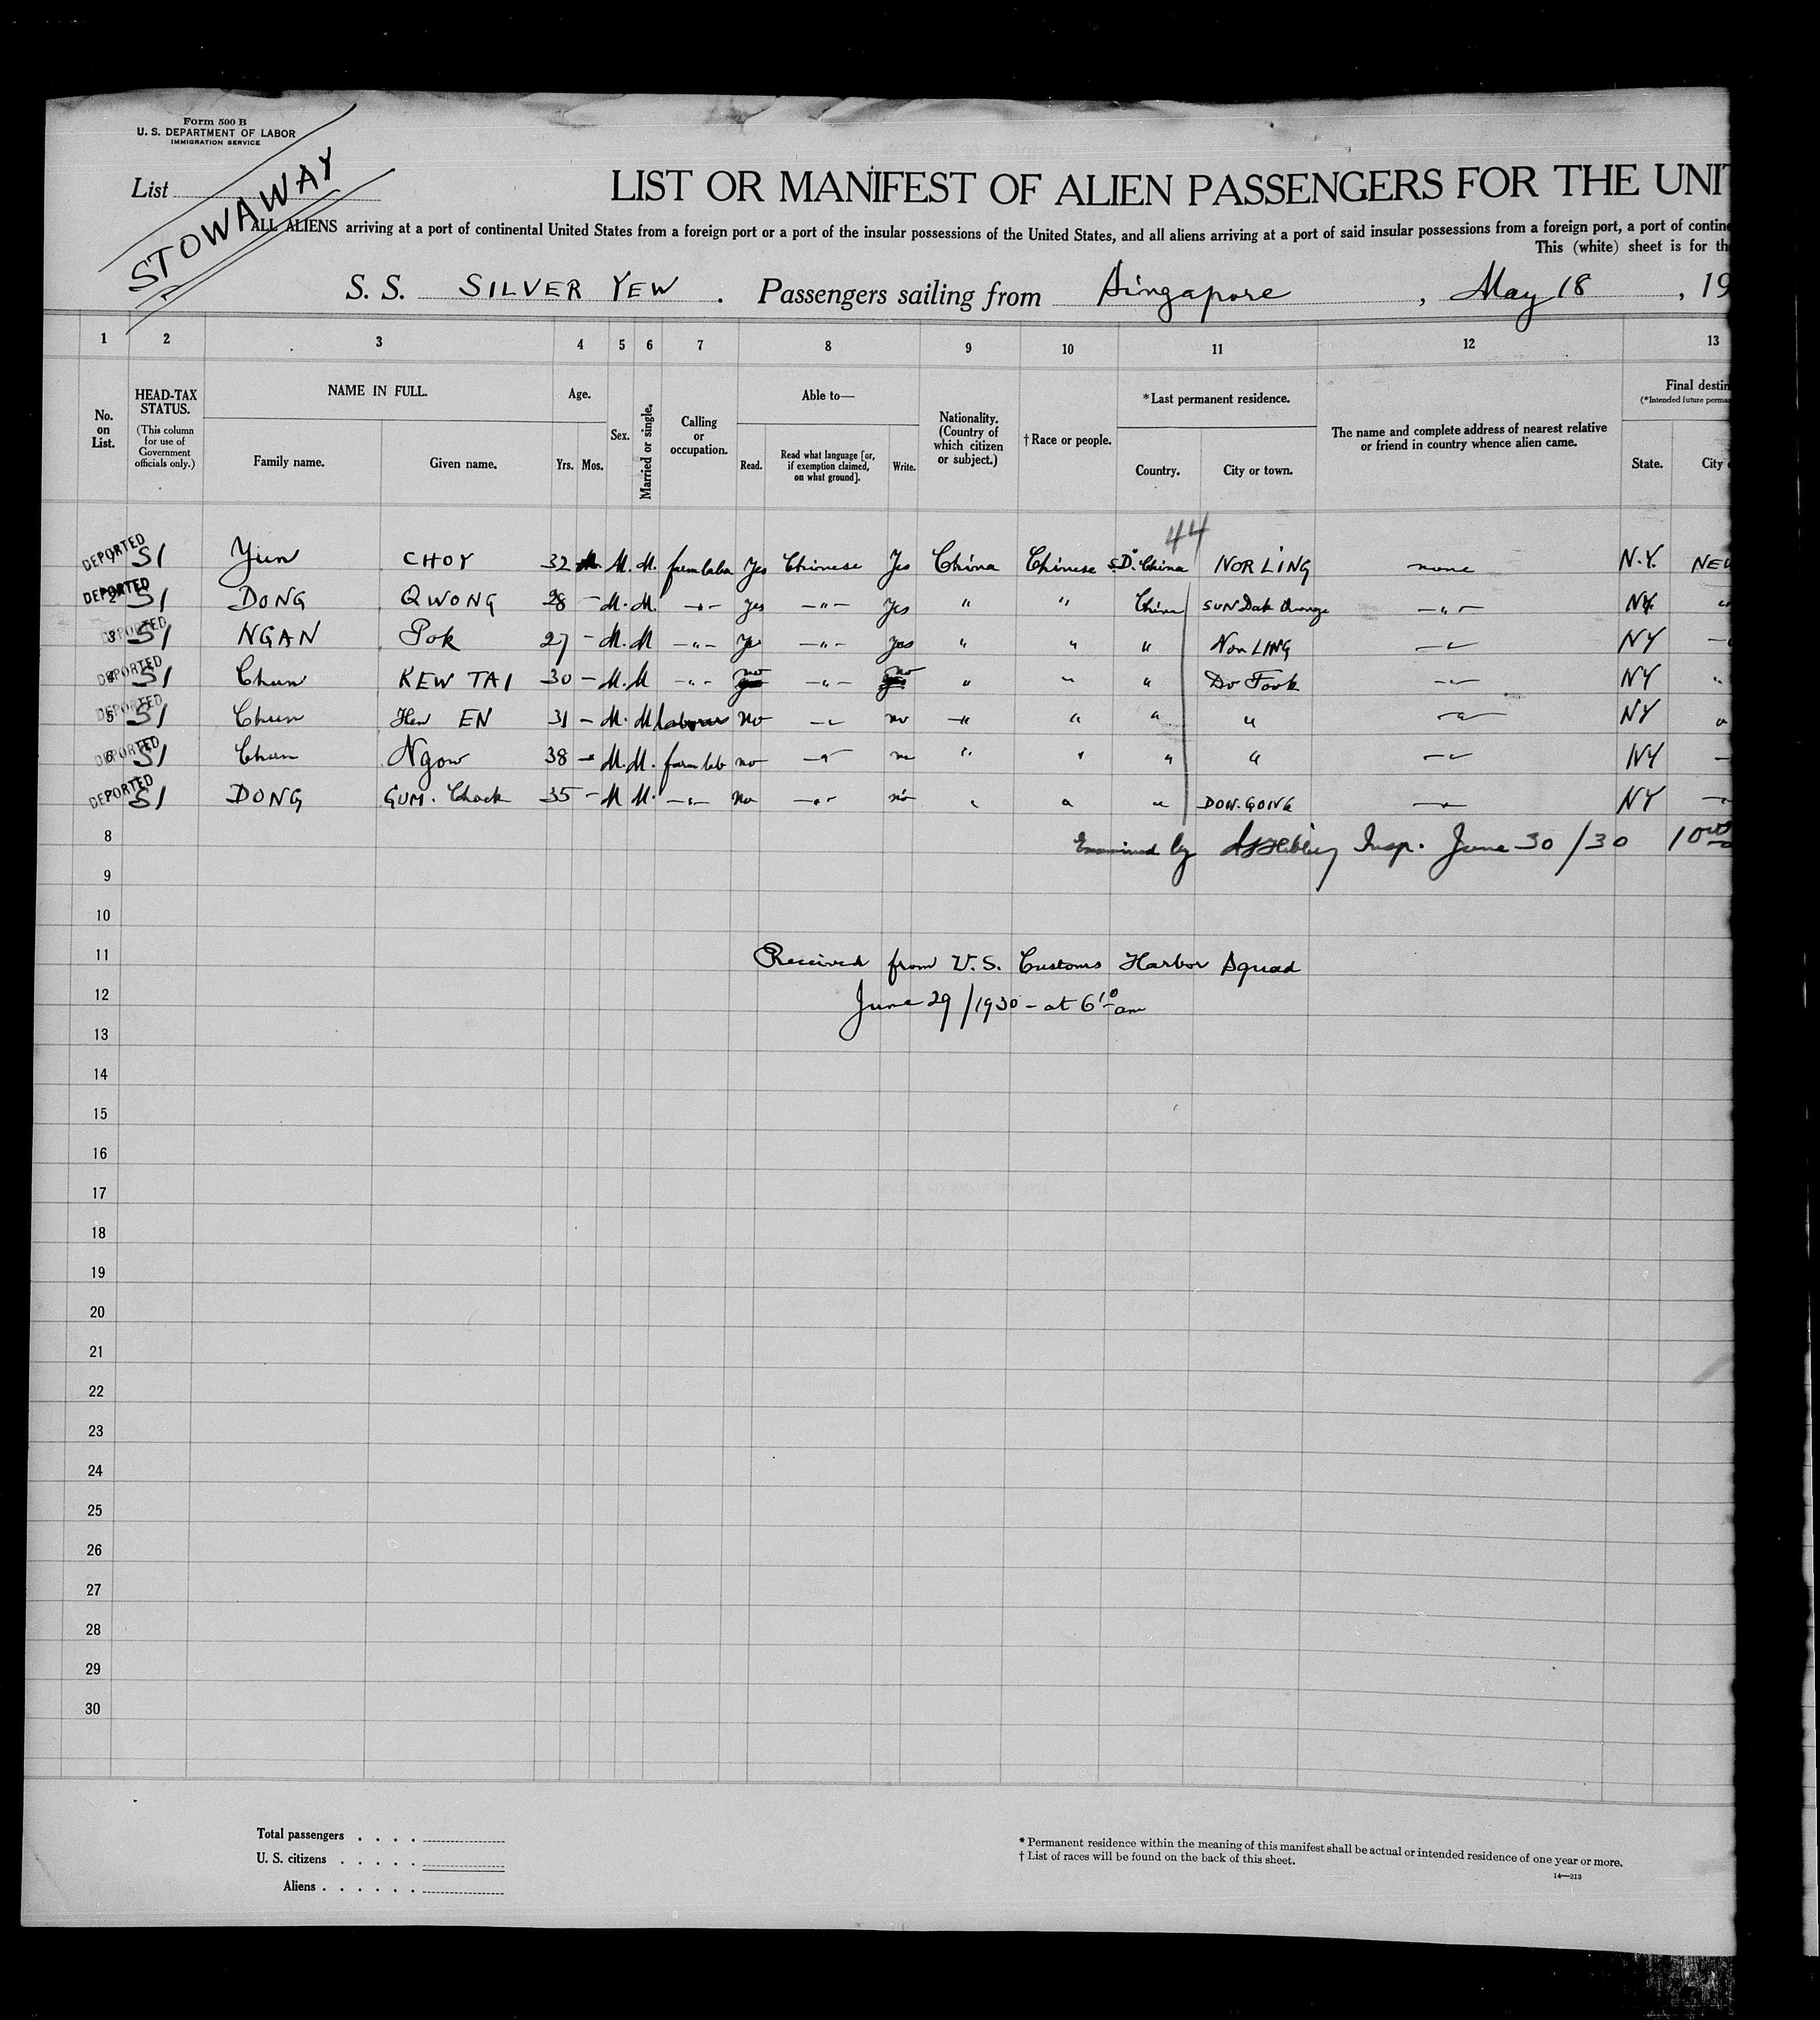 Form 500 B
U. S. DEPARTMENT OF LABOR
IMMIGRATION SERVICE
List
STOWAWAY
LIST OR MANIFEST OF ALIEN PASSENGERS FOR THE UNIT
ALL ALIENS arriving at a port of continental United States from a foreign port or a port of the insular possessions of the United States, and all aliens arriving at a port of said insular possessions from a foreign port, a port of contin
This (white) sheet is for th
S. S. SILVER YEW . Passengers sailing from Singapore , May 18 , 19
1 2 3 4 5 6 7 8 9 10 11 12 13
No. on List.
HEAD-TAX STATUS.
(This column for use of Government officials only.)
NAME IN FULL.
Family name. Given name.
Age.
Yrs. Mos.
Sex.
Married or single.
Calling or occupation.
Able to—
Read. Read what language [or, if exemption claimed, on what ground]. Write.
Nationality. (Country of which citizen or subject.)
†Race or people.
*Last permanent residence.
Country. City or town.
The name and complete address of nearest relative or friend in country whence alien came.
Final destin
(*Intended future perma
State. City
44
DEPORTED 1 SI Yun CHOY 32 M. M. farm labr Yes Chinese Yes China Chinese S.D. China NOR LING none N.Y. NEW
DEPORTED 2 SI DONG QWONG 28 - M. M. -"- yes -"- yes " " China SUN Dak -"- NY "
DEPORTED 3 SI NGAN Pok 27 - M. M -"- Yes -"- yes " " " Nor LING -"- NY -"
DEPORTED 4 SI Chun KEW TAI 30 - M. M -"- no -"- no " " " Do Fook -"- NY "
DEPORTED 5 SI Chun Hew EN 31 - M. M laborer no -"- no -"- " " " -"- NY "
DEPORTED 6 SI Chun Ngow 38 - M. M. farm lab no -"- no " " " " -"- NY -
DEPORTED SI DONG GUM. Chock 35 - M M. -"- no -"- no " " " DOW. GOING -"- NY -"
8 Examined by Insp. June 30/30 10
9
10
11 Received from U.S. Customs Harbor Squad
12 June 29/1930 - at 6 10 am
13
14
15
16
17
18
19
20
21
22
23
24
25
26
27
28
29
30
Total passengers . . . .
U. S. citizens . . . . .
Aliens . . . . . .
* Permanent residence within the meaning of this manifest shall be actual or intended residence of one year or more.
† List of races will be found on the back of this sheet.
14—213